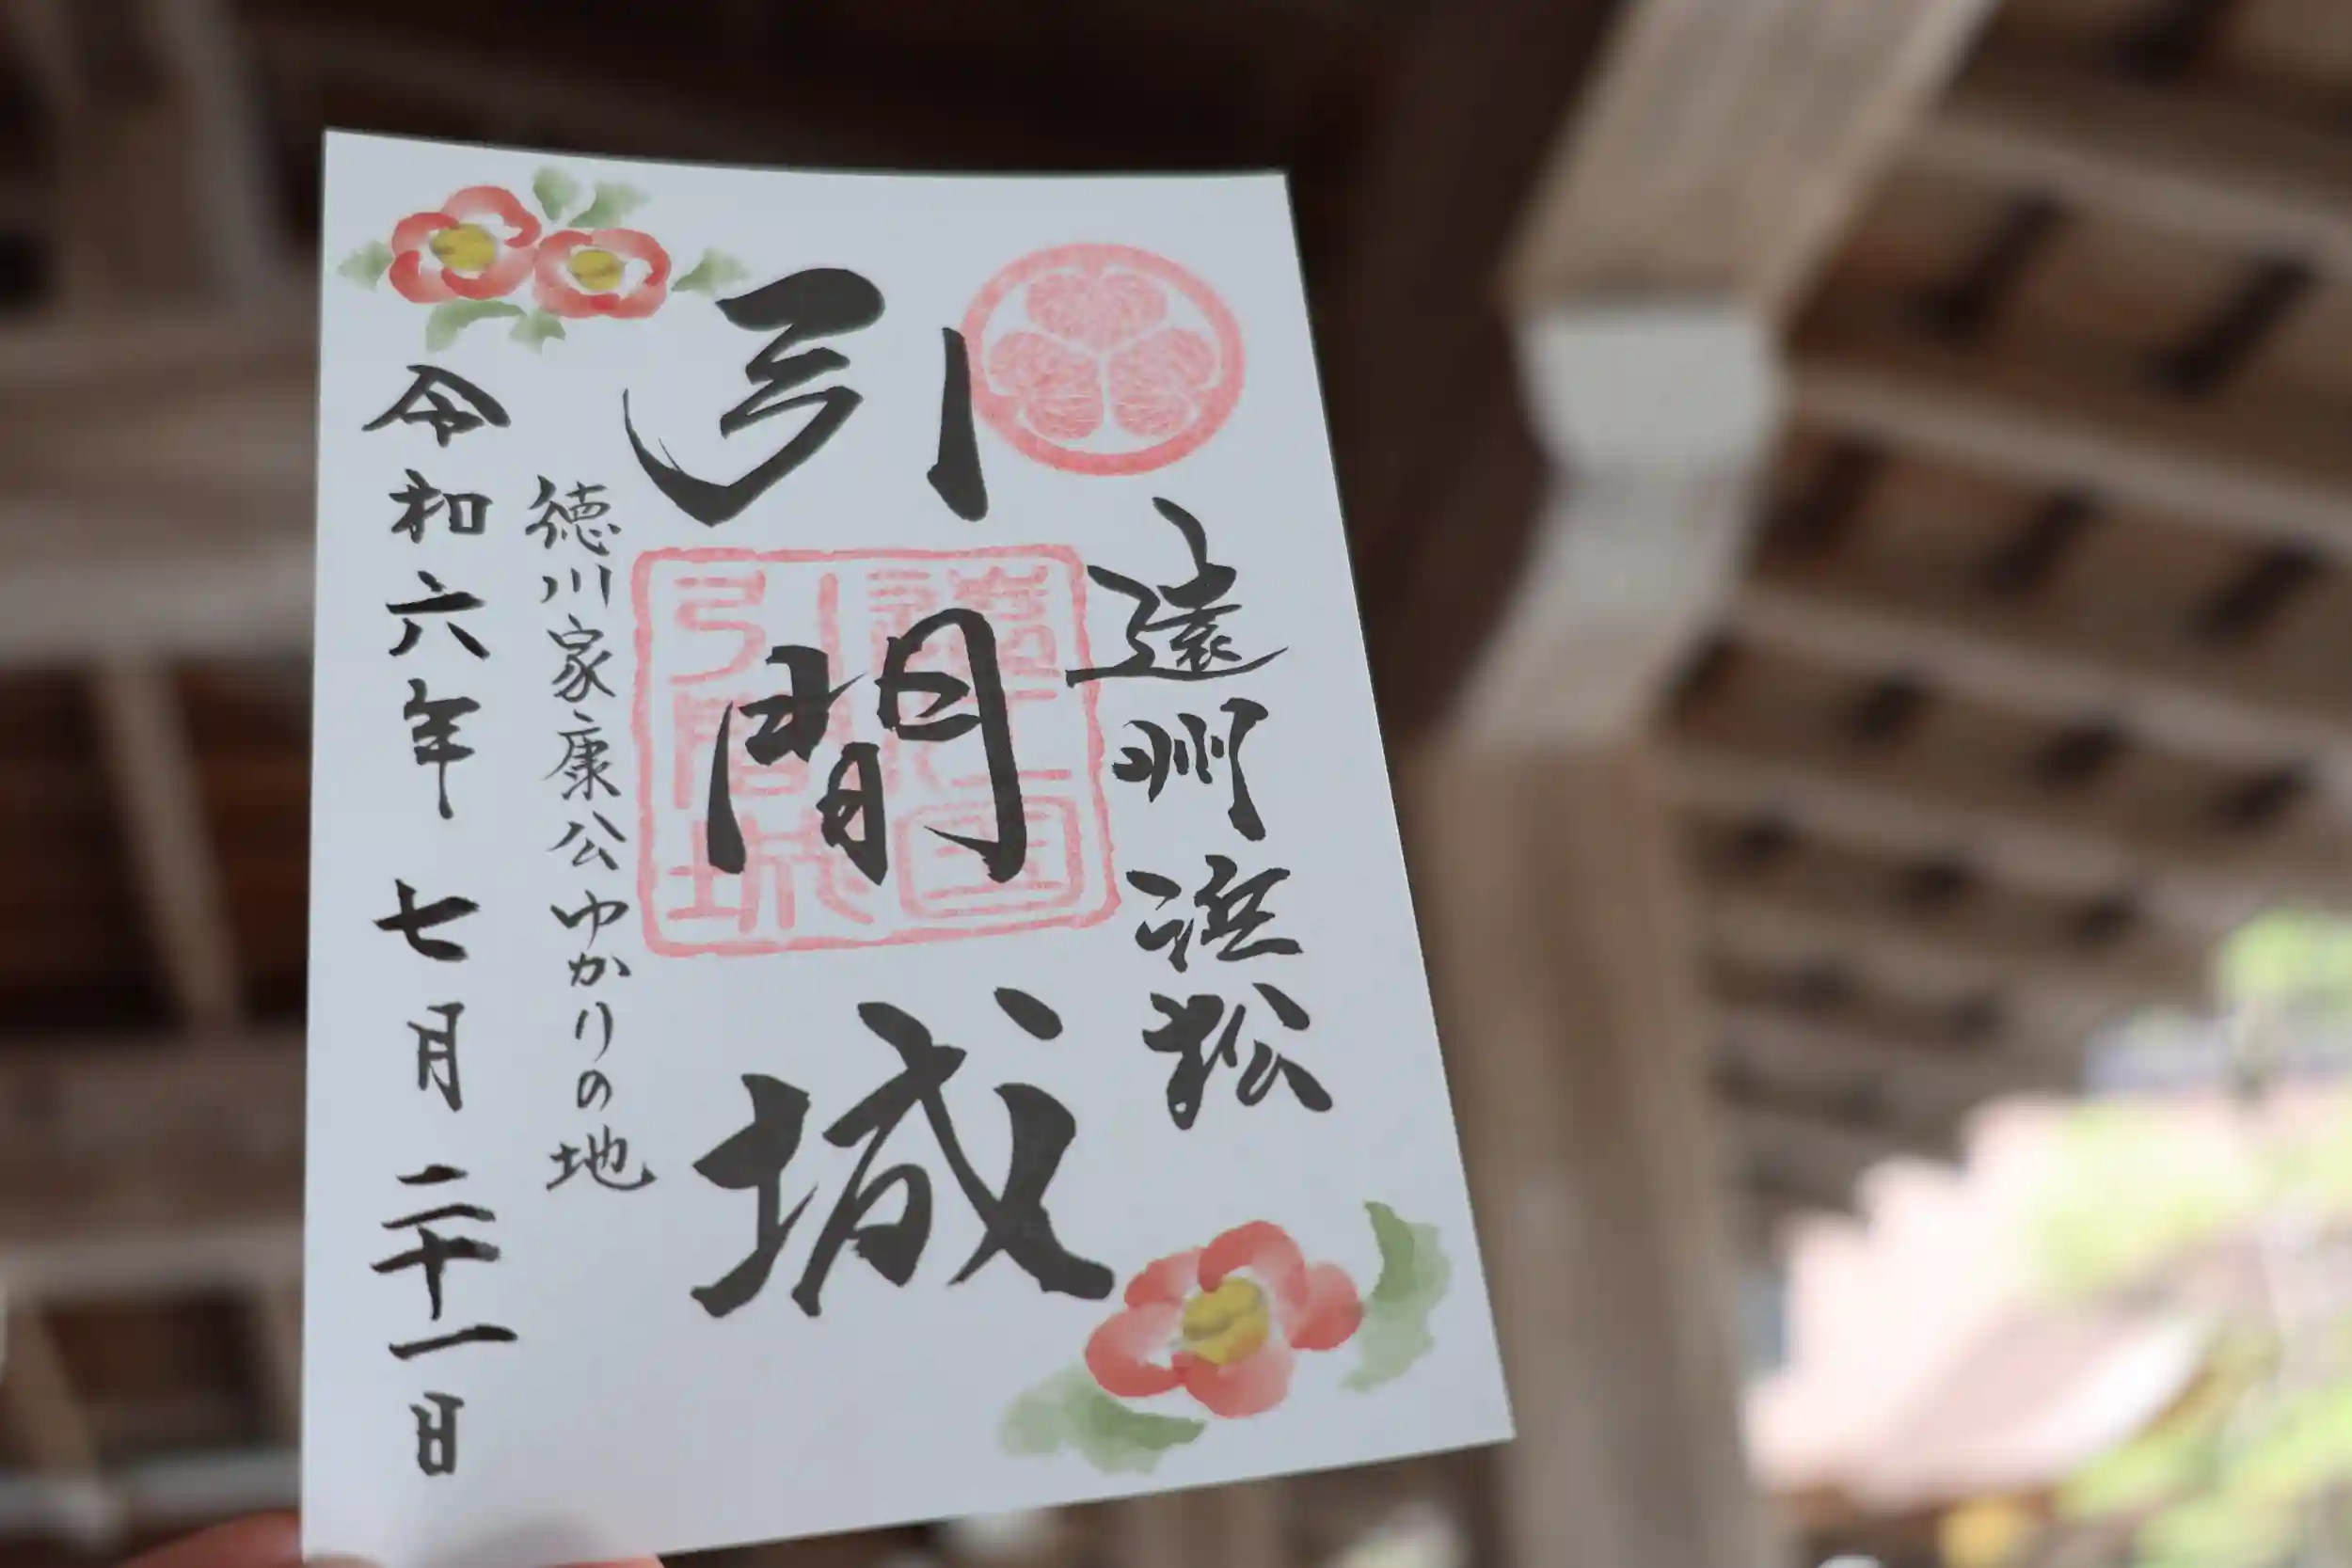 遠州浜松
引間城
徳川家康公ゆかりの地
令和六年七月二十一日
引間城